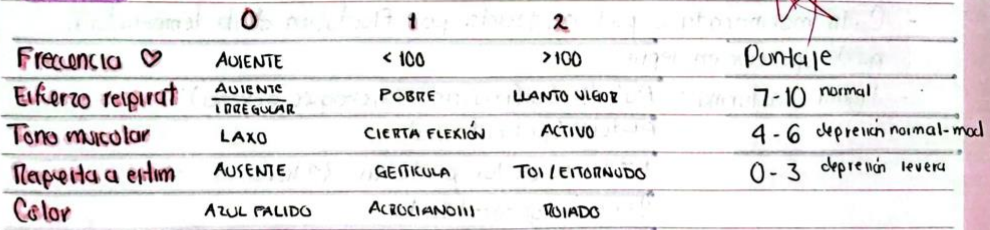 0 1 2
Frecuencia ♡ AUSENTE < 100 >100 Puntaje
Esfuerzo respirat AUSENTE IRREGULAR POBRE LLANTO VIGOR 7-10 normal
Tono muscular LAXO CIERTA FLEXIÓN ACTIVO 4-6 depresión normal-mod
Respuesta a estim AUSENTE GESTICULA TOS/ESTORNUDO 0-3 depresión severa
Color AZUL PALIDO ACROCIANOSIS ROSADO